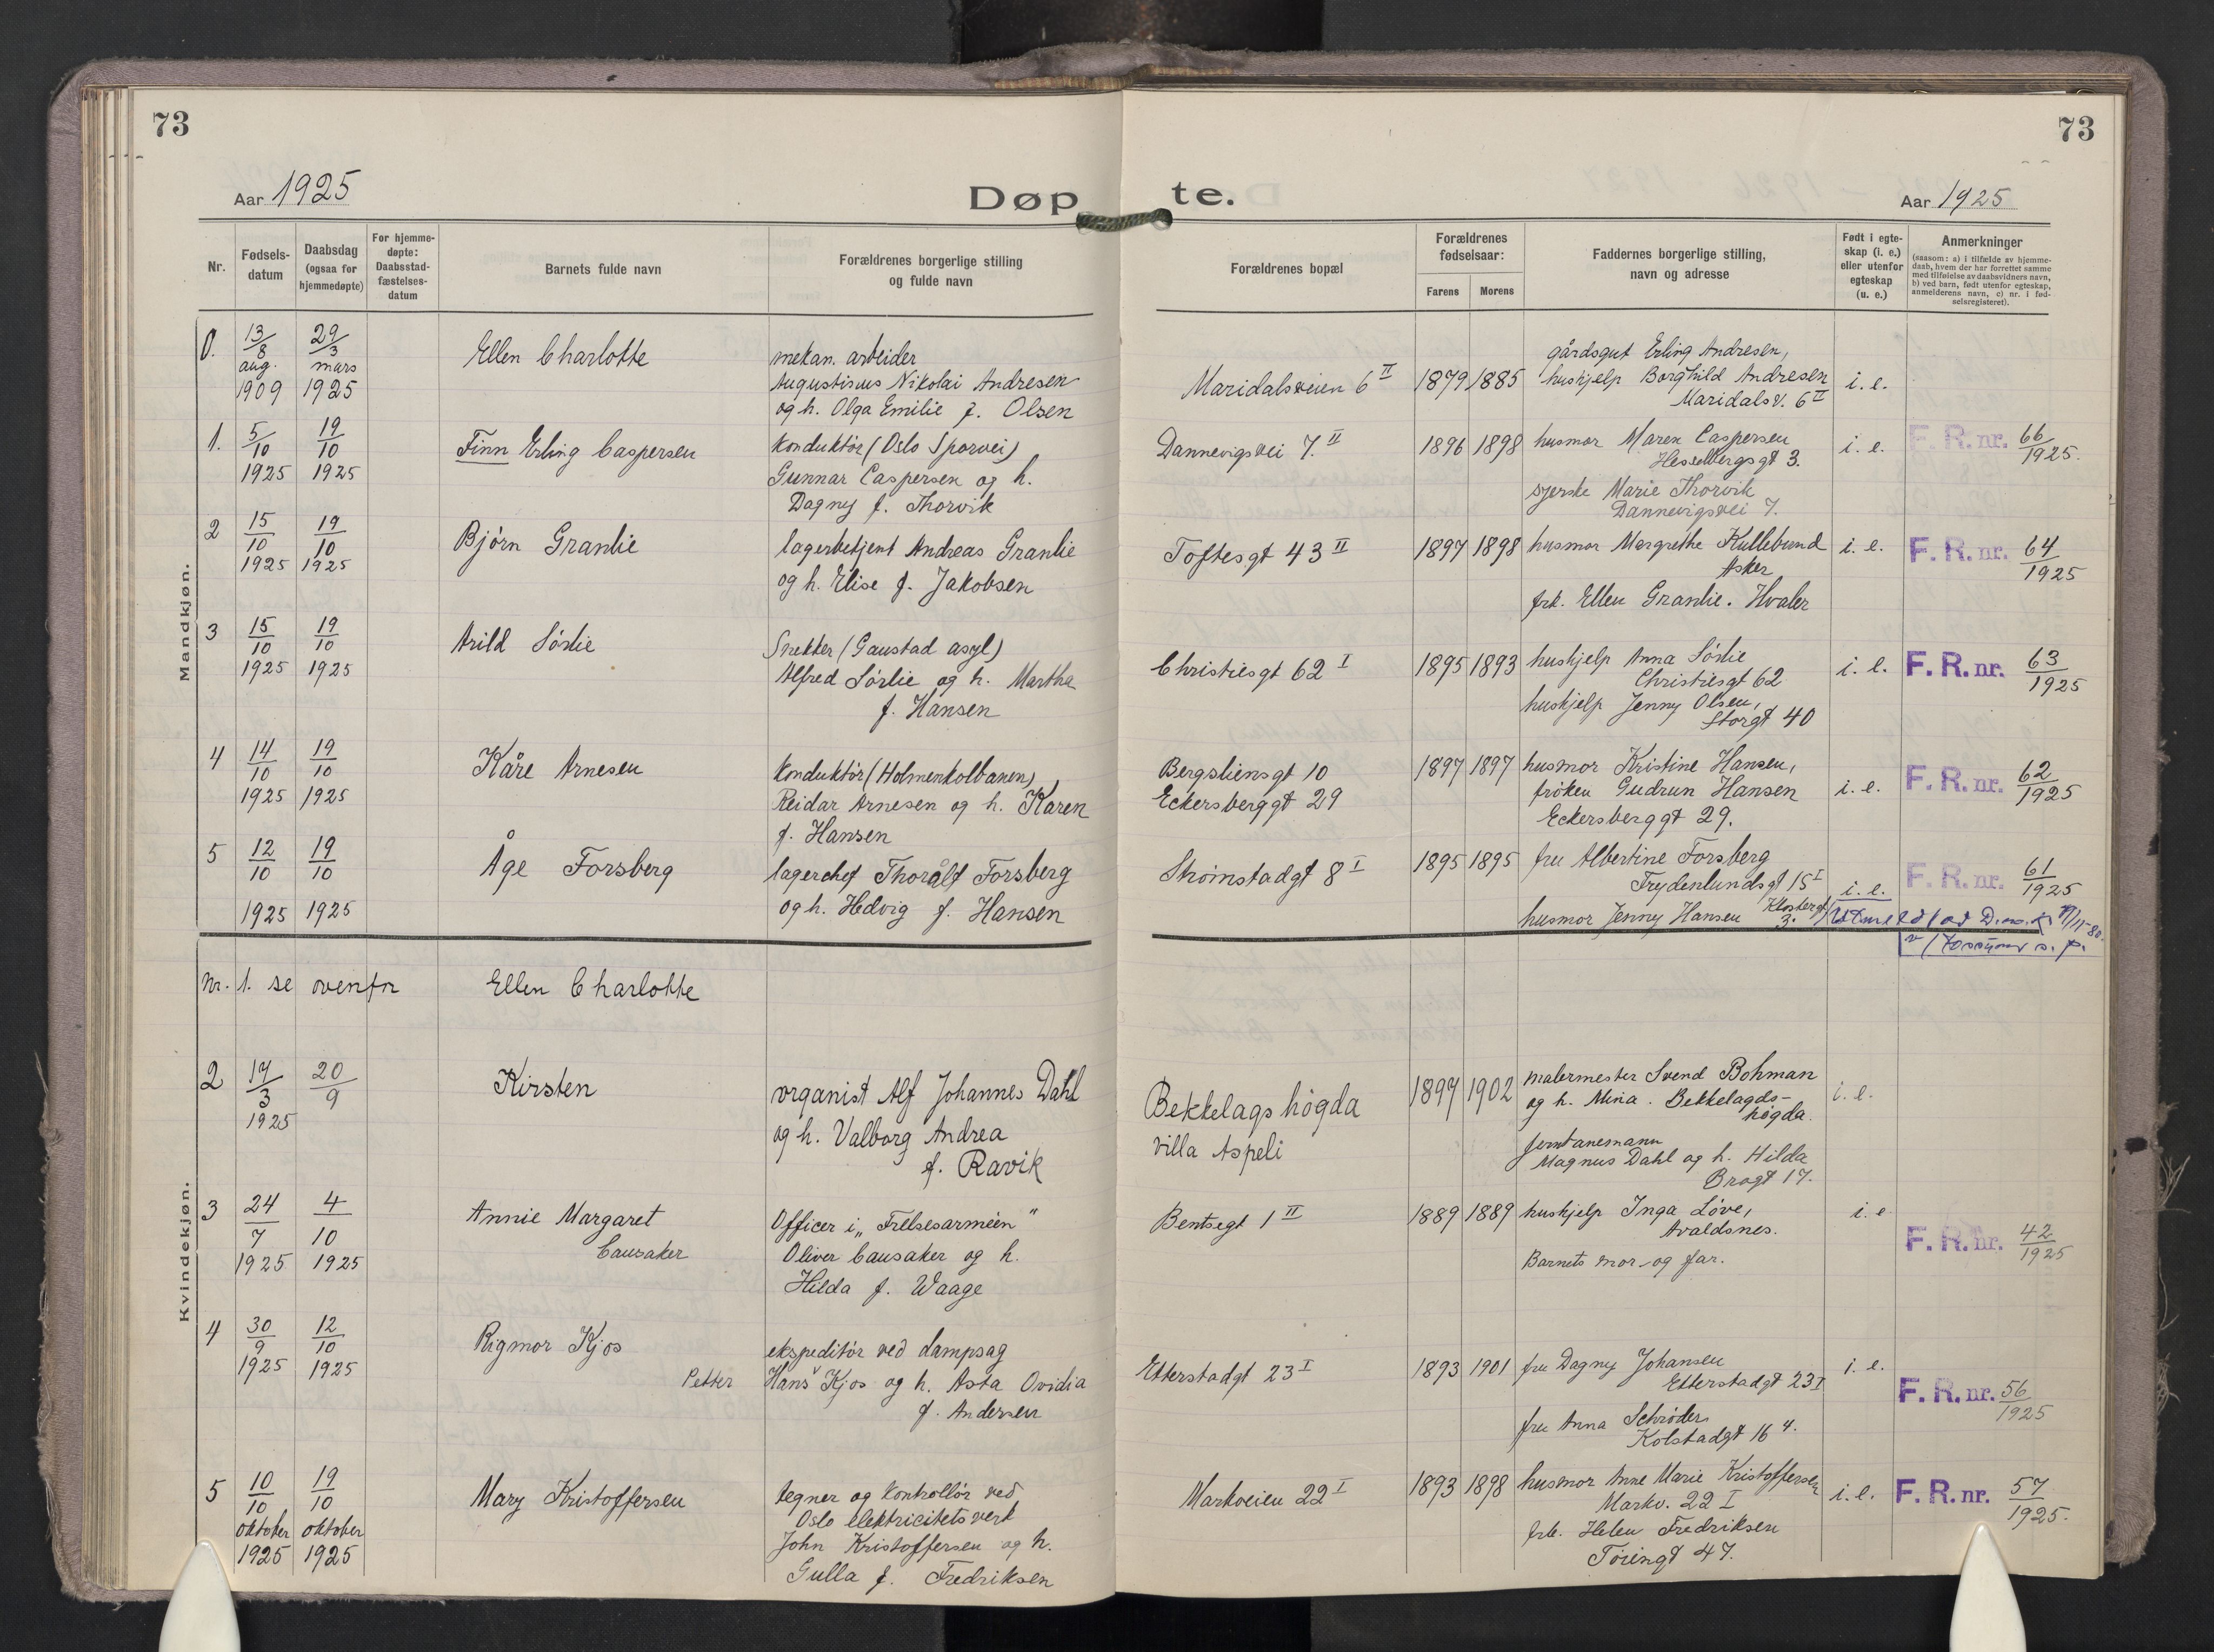 73
73
Aar 1925
Døp
te.
Aar 1925
Nr.
Fødsels-
datum
Daabsdag
(ogsaa for
hjemmedøpte)
For hjemme-
døpte:
Daabsstad-
fæstelses-
datum
Barnets fulde navn
Forældrenes borgerlige stilling
og fulde navn
Forældrenes bopæl
Forældrenes
fødselsaar:
Farens
Morens
Faddernes borgerlige stilling,
navn og adresse
Født i egte-
skap (i. e.)
eller utenfor
egteskap
(u. e.)
Anmerkninger
(saasom: a) i tilfælde av hjemme-
daab, hvem der har forrettet samme
med tilføielse av daabsvidners navn,
b) ved barn, født utenfor egteskap,
anmelderens navn, c) nr. i fød-
selsregisteret).
Mandkjøn.
0.
13/8 aug. 1909
29/3 mars 1925
Ellen Charlotte
mekan. arbeider
Augustinus Nikolai Andresen
og h. Olga Emilie f. Olsen
Maridalsveien 6 II
1879
1885
gårdsgut Erling Andresen,
hushjelp Borghild Andresen
Maridalsv. 6 II
i. e.
1.
5/10 1925
19/10 1925
Finn Erling Caspersen
Konduktör (Oslo Sporvei)
Gunnar Caspersen og h.
Dagny f. Thorvik
Dannevigsvei 7. II
1896
1898
husmor Maren Caspersen
Hesselbergsgt 3.
syerske Marie Thorvik
Dannevigsvei 7.
i. e.
F. R. nr. 66/1925.
2
15/10 1925
19/10 1925
Bjørn Granlie
lagerbetjent Andreas Granlie
og h. Elise f. Jakobsen
Toftesgt 43 II
1897
1898
husmor Margrethe Kullebund
Asker
frk. Ellen Granlie. Hvaler
i. e.
F. R. nr. 64/1925
3
15/10 1925
19/10 1925
Arild Sörlie
Snekker (Gaustad asyl)
Alfred Sörlie og h. Martha
f. Hansen
Christiesgt 62 I
1895
1893
hushjelp Anna Sörlie
Christiesgt 62
hushjelp Jenny Olsen,
Storgt 40
i. e.
F. R. nr. 63/1925
4
14/10 1925
19/10 1925
Kåre Arnesen
Konduktör (Holmenkolbanen)
Reidar Arnesen og h. Karen
f. Hansen
Bergsliensgt 10
Eckersberggt 29
1897
1897
husmor Kristine Hansen,
fröken Gudrun Hansen
Eckersberggt 29.
i. e.
F. R. nr. 62/1925
5
12/10 1925
19/10 1925
Åge Forsberg
lagerchef Thoralf Forsberg
og h. Hedvig f. Hansen
Strömstadgt 8 I
1895
1895
fru Albertine Forsberg
Frydenlundsgt 15 I
husmor Jenny Hansen
3.
i. e.
F. R. nr. 61/1925
Kvindekjøn.
Nr. 1. se ovenfor
Ellen Charlotte
2
17/3 1925
20/9
Kirsten
organist Alf Johannes Dahl
og h. Valborg Andrea
f. Ravik
Bekkelagshögda
villa Aspeli
1897
1902
malermester Svend Bohman
og h. Mina. Bekkelagds-
högda.
Magnus Dahl og h. Hilda
Brogt 17.
i. e.
3
24/7 1925
4/10 1925
Annie Margaret
Causaker
Officer i „Frelsesarméen"
Oliver Causaker og h.
Hilda f. Waage
Bentsegt 1 II
1889
1889
hushjelp Inga Löve,
Avaldsnes.
Barnets mor og far.
i. e
F. R. nr. 42/1925
4
30/9 1925
12/10 1925
Rigmor Kjos
ekspeditör ved dampsag
Petter
Hans Kjos og h. Asta Ovidia
f. Andersen
Etterstadgt 23 I
1893
1901
fru Dagny Johansen
Etterstadgt 23 I
fru Anna Schröder
Kolstadgt 16 4.
i. e.
F. R. nr. 56/1925
5
10/10 oktober 1925
19/10 oktober 1925
Mary Kristoffersen
tegner og kontrollör ved
Oslo elektricitetsverk
John Kristoffersen og h.
Gulla f. Fredriksen
Markveien 22 I
1893
1898
husmor Anne Marie Kristoffersen
Markv. 22 I
frk. Helen Fredriksen
Töiengt 47.
i. e.
F. R. nr. 57/1925.